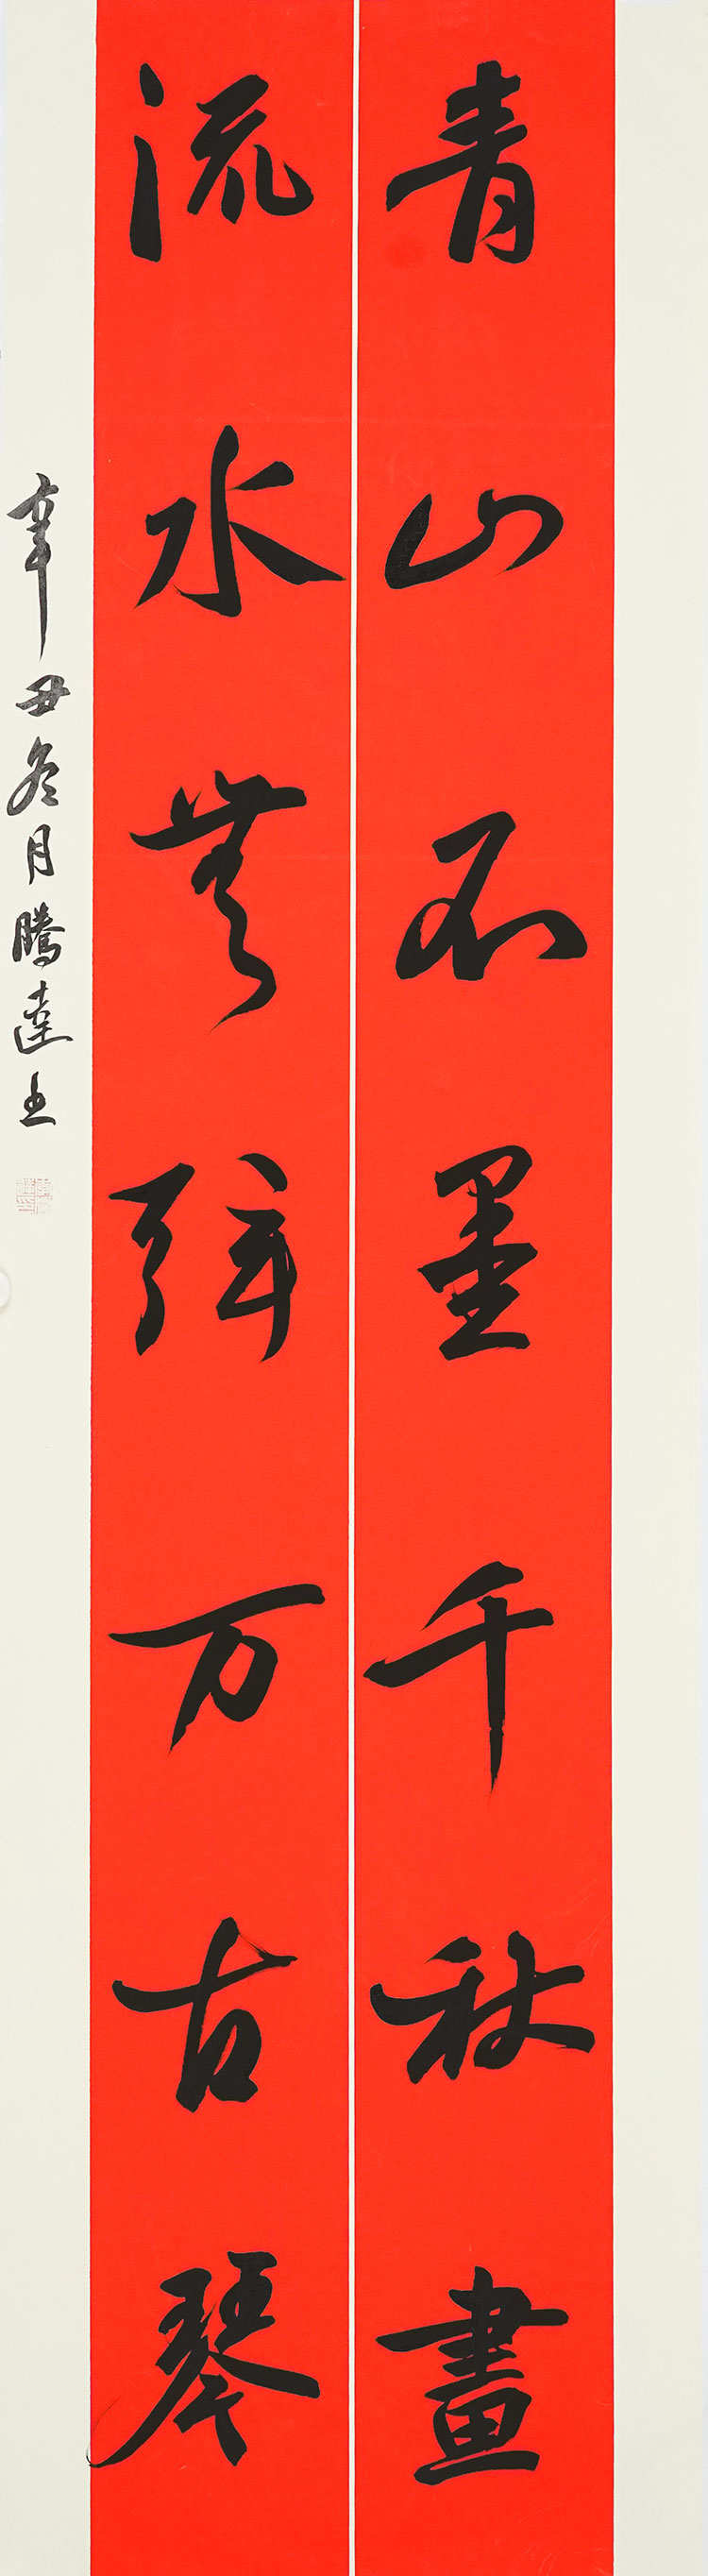 青山不墨千秋畫
流水無弦万古琴
辛丑冬月騰達书